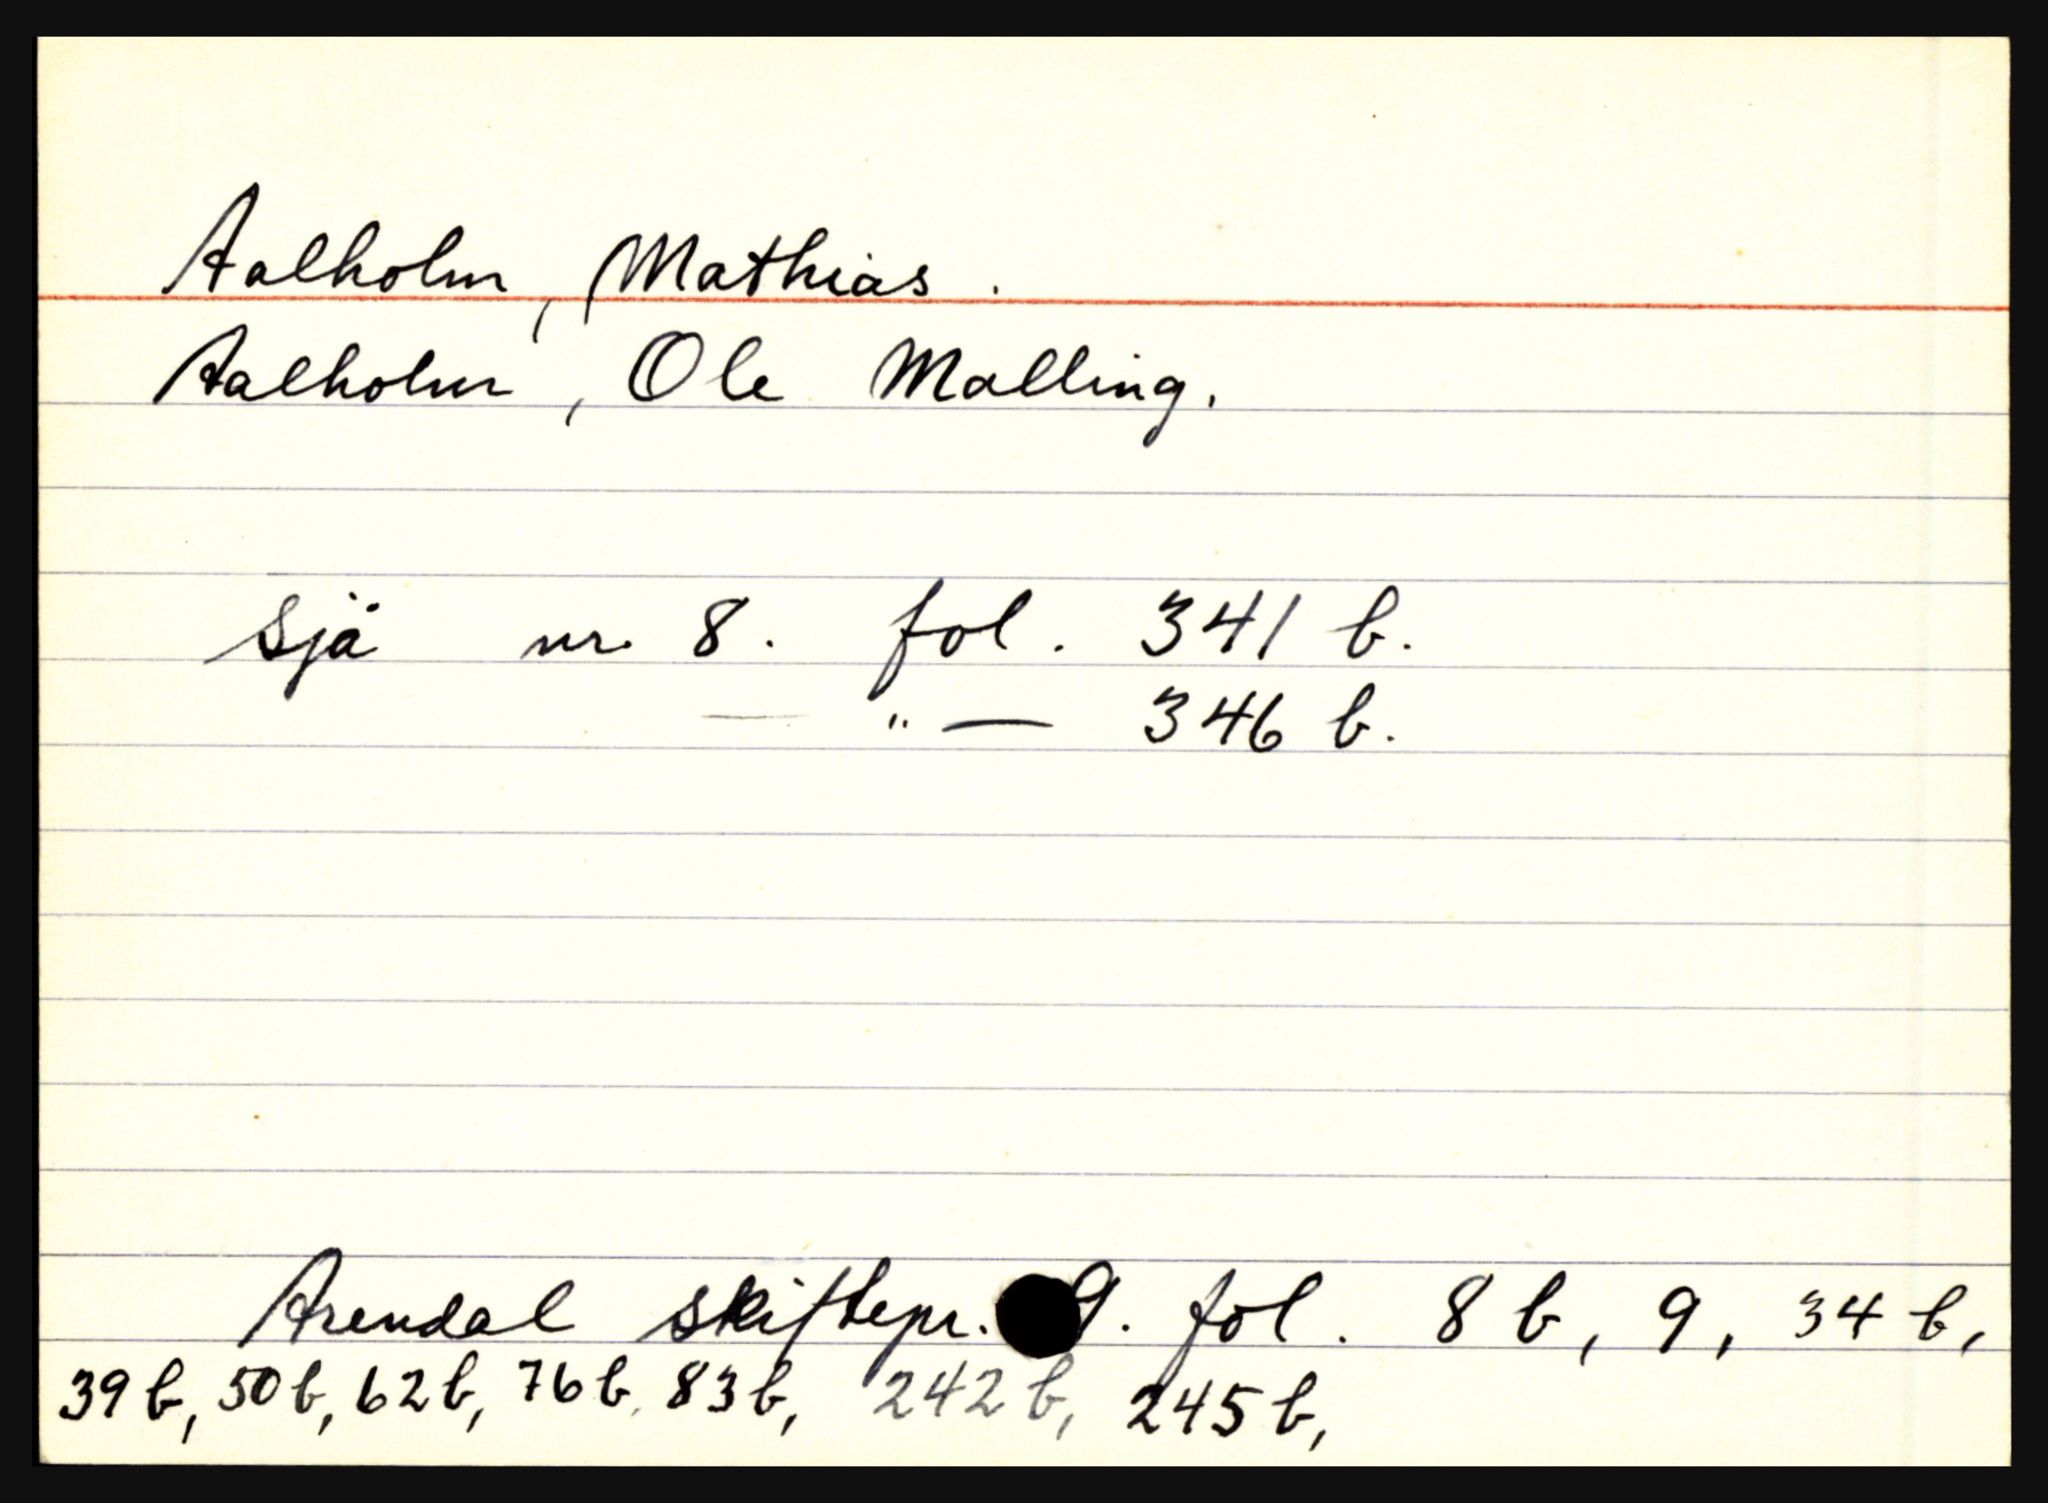 Aalholm, Mathias.
Aalholm, Ole Malling.
Sjå nr. 8. fol. 341 b.
— " — 346 b.
Arendal skiftepr. 9. fol. 8 b, 9, 34 b,
39 b, 50 b, 62 b, 76 b, 83 b, 242 b, 245 b,